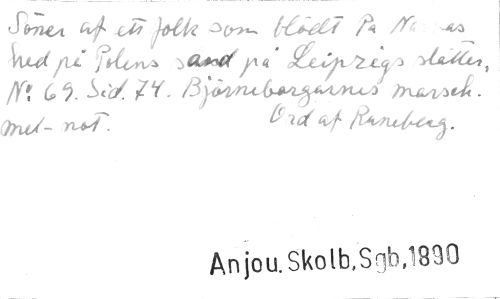 Söner af ett folk som blödt På Narvas
hed på Polens sand på Leipzigs slätter,
No 69. Sid. 74. Björneborgarnes marsch.
met-not. Ord af Runeberg.
Anjou. Skolb, Sgb, 1890